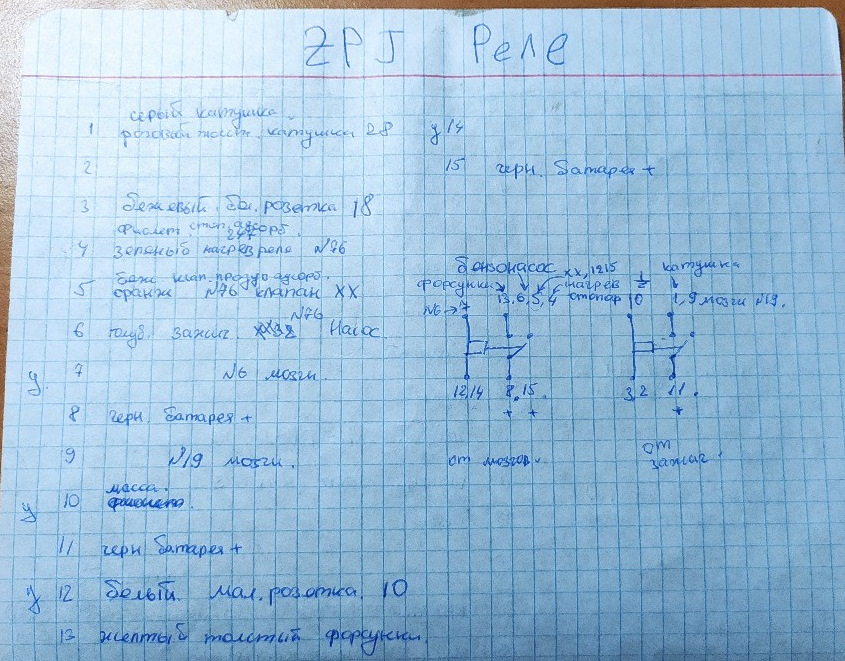 ZPJ Реле
серый катушка.
1 розовый толст. катушка 28
у 14
2
15 черн. батарея +
3 бежевый бол. розетка 18
Фиолет. стоп. адсорб.
4 зеленый нагрев реле №76
беж клап. продув адсорб.
5 оранж №76 клапан ХХ
№76
6 голуб. зажиг. Насос.
у. 7 №6 мозги.
8 черн. батарея +
9 №19 мозги.
масса.
у 10
11 черн батарея +
у 12 белый. мал. розетка. 10
13 желтый толстый форсунки.
бензонасос
форсунки ХХ, 1215
нагрев
стопор
№6 → 7 13, 6, 5, 4
12,14 8, 15.
+ +
от мозгов.
катушка
10 1, 9 мозги №19.
3, 2 11.
+
от
зажиг.